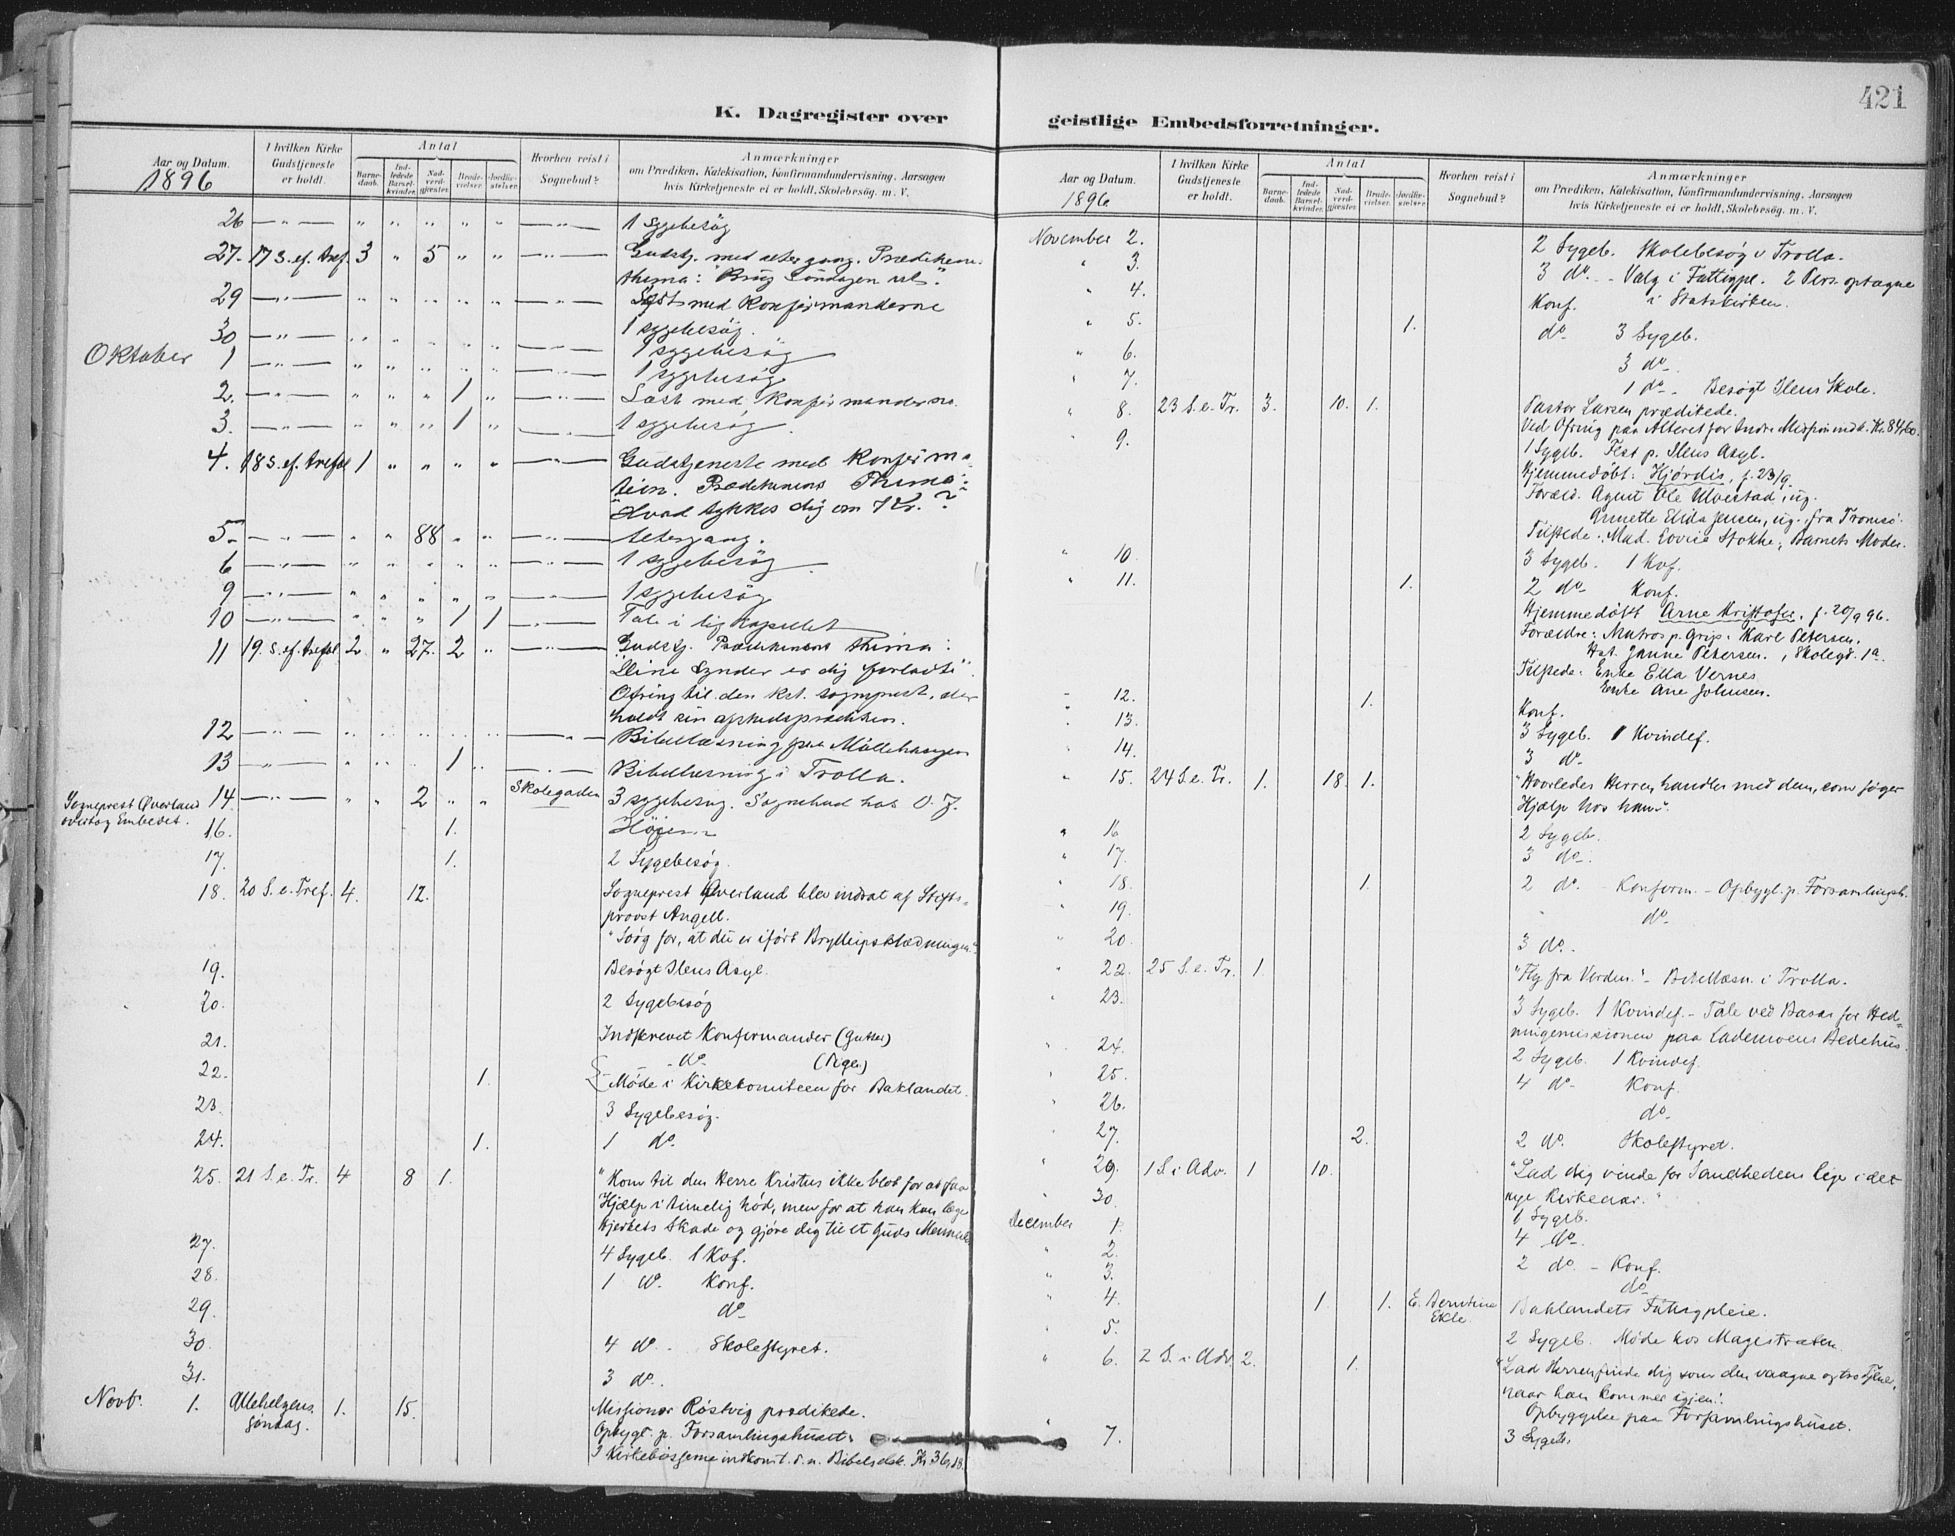 421
K. Dagregister over geistlige Embedsforretninger.
Aar og Datum. I hvilken Kirke Gudstjeneste er holdt. Antal Barnedaab. Indledede Barselkvinder. Nadverdgjester. Brudevielser. Jordfæstelser. Hvorhen reist i Sognebud? Anmærkninger om Prædiken, Katekisation, Konfirmandundervisning, Aarsagen hvis Kirketjeneste ei er holdt, Skolebesøg. m. V.
1896
26 — " — " " " " " — " — 1 Sygebesøg
27. 17 S. ef. tref. 3 " 5 " " — " — Gudstj. med altergang. Prædikens
thema: "Brug Søndagen ret".
29 — " — " " " " " — " — Læst med Konfirmanderne
30 — " — " " " " " — " — 1 sygebesøg.
Oktober 1 — " — " " " " " — " — 1 sygebesøg
2. — " — " " " 1 " — " — 1 sygebesøg
Læst med Konfirmanderne.
3. — " — " " " 1 " — " — 1 sygebesøg.
4. 18 S. ef. trefol 1 " " " " — " — Gudstjeneste med Konfirma-
tion. Prædikenens Thema:
"Hvad tykkes dig om Kr.?"
5 — " — " " 88 " " — " — Altergang.
6 — " — " " " " " — " — 1 sygebesøg
9 — " — " " " " " — " — 1 sygebesøg
10 — " — " " " 1 1 — " — Tale i ligkapellet
11 19. S. ef. trefol. 2 " 27. 2 " — " — Gudstj. Prædikenens thema:
"Dine Synder er dig forladt".
Ofring til den kst. sognepræst, der
holdt sin afskedsprædiken.
12 — " — " " " " " — " — Bibellæsning paa Møllebakken
13 — " — " " " 1 " — " — Bibellæsning i Trolla.
Sogneprest Øverland
overtog Embedet.
14. — " — " " 2 " " Skolegaden 3 sygebesøg. Sognebud hos O. J.
16. 1.
17. 1. 2 Sygebesøg.
18. 20 S. e. Tref. 4. 12. Sogneprest Øverland blev indsat af Stifts-
provst Angell.
"Sørg for, at du er iført Bryllupsklædningen".
19. Besøgt Ilens Asyl.
20. 2 Sygebesøg
21. Indskrevet Konfirmander (Gutter)
22. 1. do (Piger)
Møde i Kirkekomiteen for Baklandet.
23. 3 Sygebesøg.
24. 1. 1 do
25. 21 S. e. Tr. 4 8 1. "Kom til den Herre Kristus ikke blot for at faa
Hjælp i timelig Nød, men for at han kan læge
Hjertets Skade og gjøre dig til et Guds Menneske
27. 4 Sygeb. 1 Kof.
28. 1 do. Konf.
29. do
30. 4 do. Skolestyret.
31. 3 do.
Novb. 1. Allehelgens
søndag. 1. 15. Missionær Röstvig prædikede.
Opbygt. p. Forsamlingshuset.
I Kirkebøsserne indkomt. d. n. Bibelselsk. Kr. 36,18.
Aar og Datum. I hvilken Kirke Gudstjeneste er holdt. Antal Barnedaab. Indledede Barselkvinder. Nadverdgjester. Brudevielser. Jordfæstelser. Hvorhen reist i Sognebud? Anmærkninger om Prædiken, Katekisation, Konfirmandundervisning, Aarsagen hvis Kirketjeneste ei er holdt, Skolebesøg. m. V.
1896
November 2. 2 Sygeb. Skolebesøg i Trolla.
" 3. 3 do. - Valg i Fattigpl. 2 Pers. optagne
i Statskirken.
" 4. Konf.
" 5. 1. do 3 Sygeb.
" 6. 3 do
" 7. 1 do - Besøgt Ilens Skole.
" 8. 23 S. e. Tr. 3. 10. 1. Pastor Larsen prædikede.
Ved Ofring paa Alteret for Indre Mission indk. Kr. 84,60.
" 9. 1 Sygeb. Fest p. Ilens Asyl.
Hjemmedøbt: Hjørdis, f. 23/9.
Foræld. Agent Ole Ulvestad, ug.
Annette Elida Jensen, ug. fra Tromsø.
Tilstede: Mad. Lovise Stokke, Barnets Moder.
" 10. 3 Sygeb. 1 Kof.
" 11. 1. 2 do Konf.
Hjemmedøbt Arne Kristofer, f. 20/9 96.
Forældre: Matros p. Grip. Karl Petersen.
Hst. Janne Petersen, Skolegd. 1a.
Tilstede: Enke Ella Vernes
Enke Ane Johnsen.
" 12. 1. Konf.
" 13. 3 Sygeb. 1 Kvindef.
" 14. 3 do
" 15. 24 S. e. Tr. 1. 18. 1. "Hvorledes Herren handler med dem, som søger
Hjælp hos ham".
" 16 2 Sygeb.
" 17. 3 do.
" 18. 1. 2 do. - Konfirm. - Opbygl. p. Forsamlingsh.
" 19. do
" 20. 3 do.
" 22. 25 S. e. Tr. 1. "Fly fra Verden." - Bibellæsn. i Trolla.
" 23. 3 Sygeb. 1 Kvindef. - Tale ved Basar for Hed-
ningemissionen paa Lademoens Bedehus.
" 24. 2 Sygeb. 1 Kvindef.
" 25. 4 do Konf.
" 26. do
" 27. 2. 2 do. Skolestyret.
" 29. 1 S. i Adv. 1 10. "Lad dig vinde for Sandheden lige i det
nye Kirkeaar."
" 30. 1 Sygeb.
December 1. 4 do
" 2. 2 do. - Konf.
" 3. do
" 4. 1. 1. E. Berntine
Ekle Baklandets Fattigpleie.
" 5. 2 Sygeb. Møde hos Magistraten.
" 6. 2 S. i Adv. 2. 1. "Lad Herren finde dig som den vaagne og tro Tjener,
naar han kommer igjen".
Opbyggelse paa Forsamlingshuset.
" 7. 3 Sygeb.